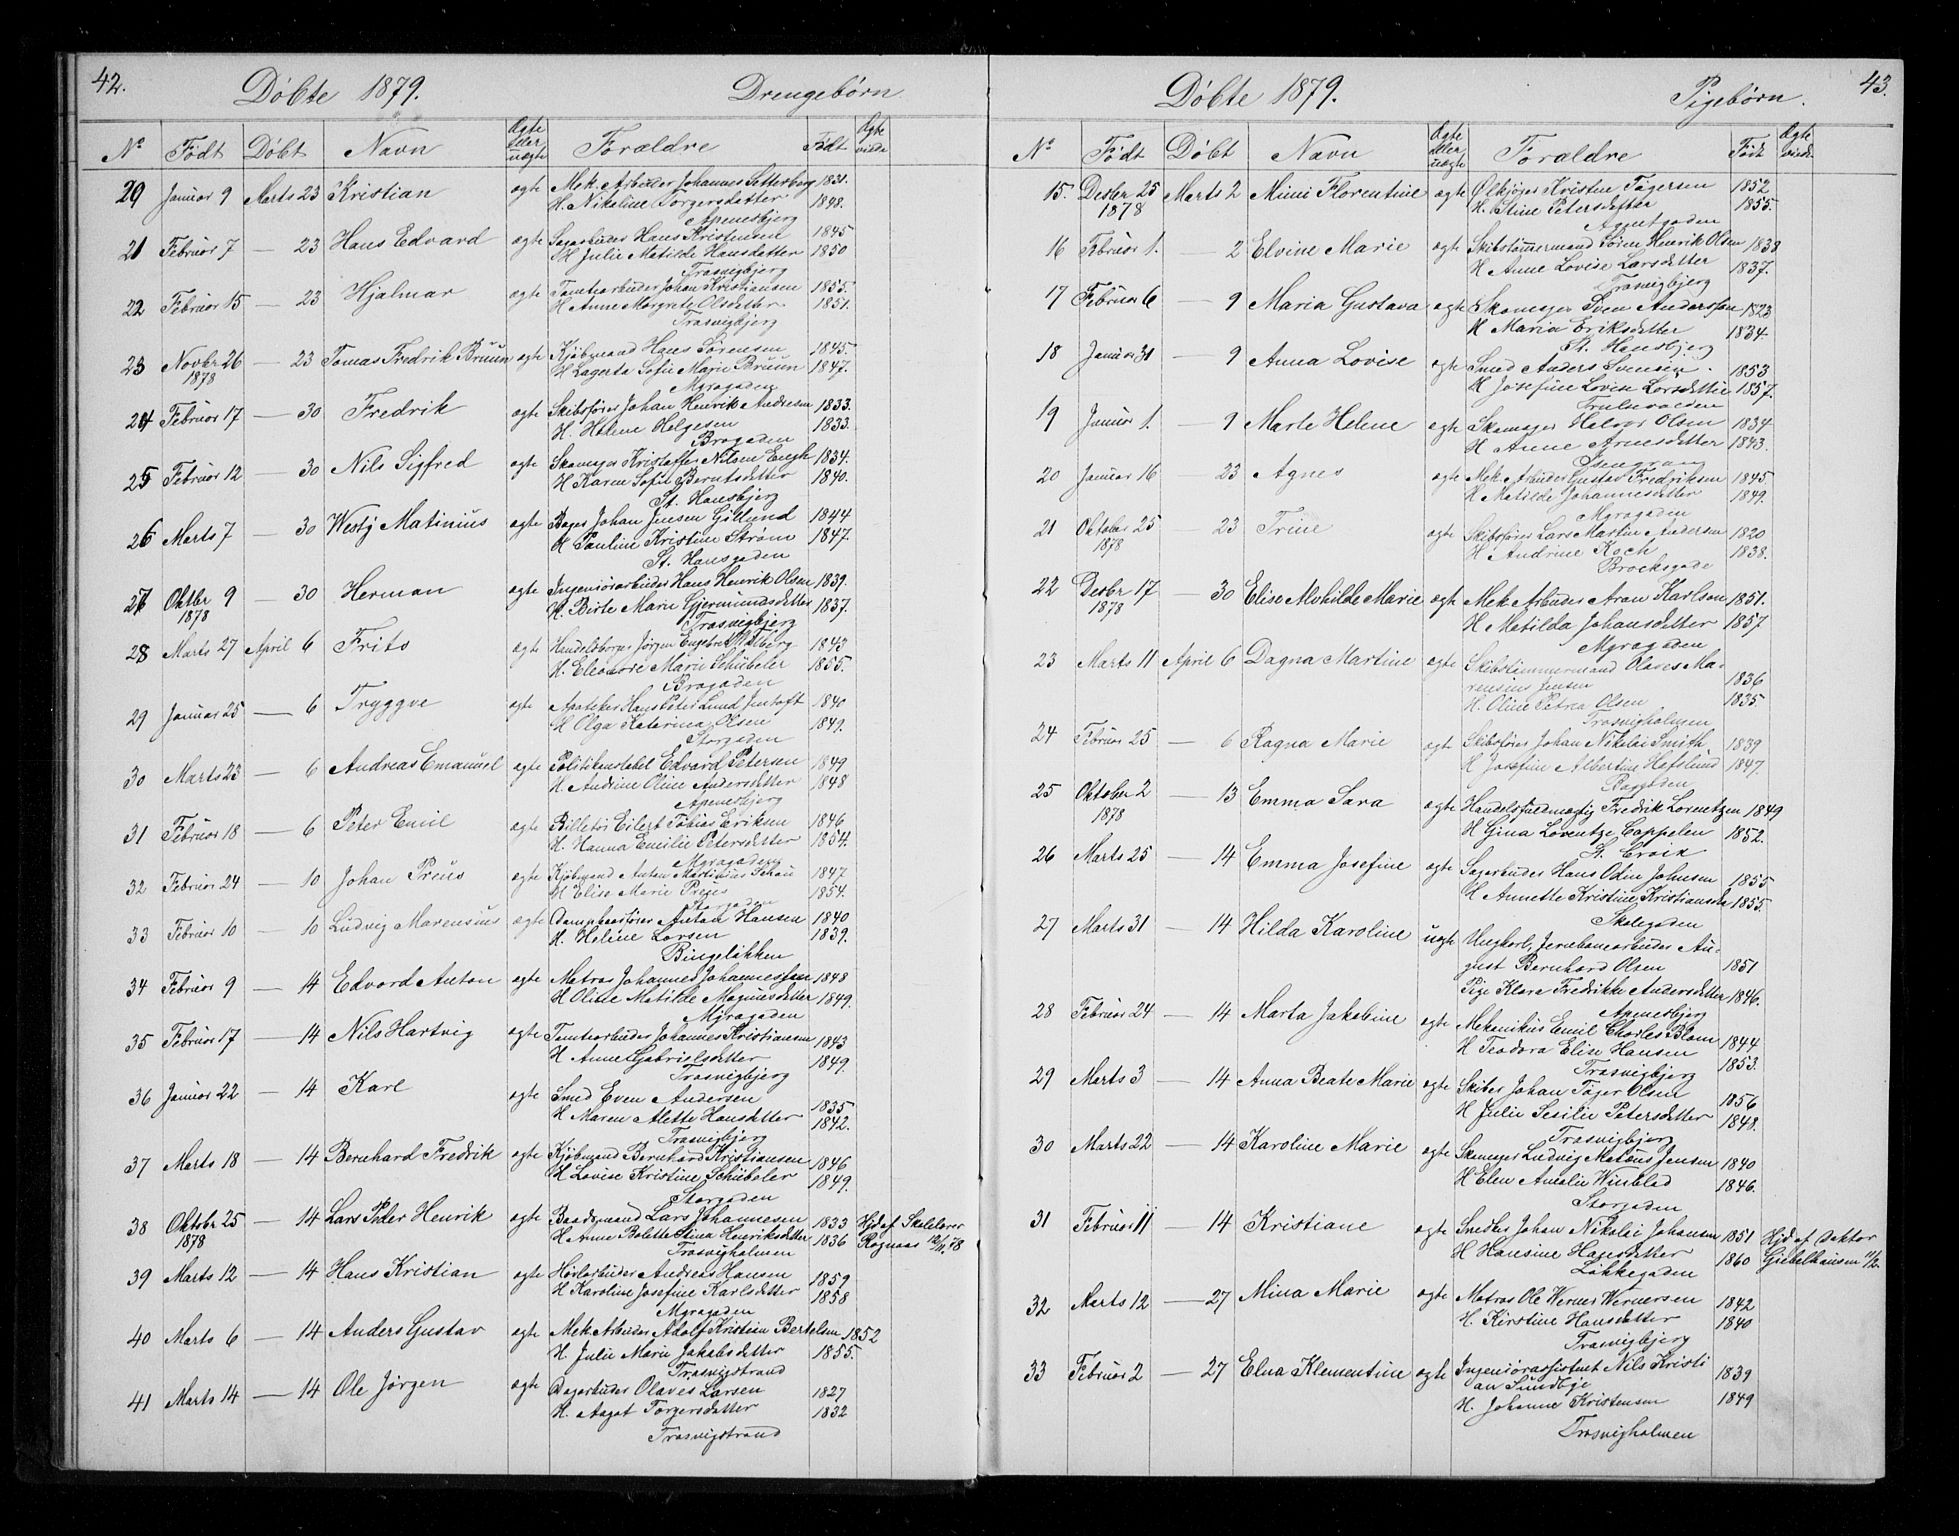 42.
Döbte 1879.
Drengebörn
No Födt Döbt Navn Ægte eller uægte Forældre Födt
20 Januar 9 Marts 23 Kristian ægte Mek. Arbeider Johannes Setterberg 1831.
H. Nikoline Torgersdatter 1848.
Apenesbjerg
21 Februar 7 — 23 Hans Edvard ægte Sagarbeider Hans Kristensen 1845
H Julie Matilde Hansdatter 1850
Trosvigbjerg
22 Februar 15 — 23 Hjalmar ægte Tomtearbeider Johan Kristiansen 1855.
H Anne Margrete Olsdatter 1851.
Trosvigbjerg
23 Novbr 26 — 23 Tomas Fredrik Bruun ægte Kjöbmand Hans Sörensen 1845.
1878 H Lagerta Sofie Marie Bruun 1847.
Myragaden
24 Februar 17 — 30 Fredrik ægte Skibsförer Johan Henrik Andresen 1833.
H. Helene Helgesen 1833.
Brogaden
25 Februar 12 — 30 Nils Sigfred ægte Skomager Kristoffer Nilsen Engh 1834.
H Karen Sofie Berntsdatter 1840.
St. Hansbjerg
26 Marts 7 — 30 Westy Matinius ægte Bager Johan Jensen Gillund 1844
H Pauline Kristine Ström 1847.
St. Hansgaden
27 Oktbr 9 — 30 Herman ægte Ingeniörarbeider Hans Henrik Olsen 1839.
1878 H. Birte Marie Gjermundsdatter 1837.
Trosvigbjerg
28 Marts 27 April 6 Frits ægte Handelsborger Jörgen Engebret Walberg 1843
H. Eleonore Marie Schübeler 1855.
Brogaden
29 Januar 25 — 6 Tryggve ægte Apoteker Hans Peter Lund Jentoft 1840
H Olga Katerina Olsen 1849.
Storgaden
30 Marts 23 — 6 Andreas Emanuel ægte Politikonstabel Edvard Petersen 1849
H. Andrine Oline Andersdatter 1848
Apenesbjerg
31 Februar 18 — 6 Peter Emil ægte Billetör Eilert Tobias Eriksen 1846
H. Hanna Emilie Petersdatter 1854.
Myragaden
32 Februar 24 — 10 Johan Preus ægte Kjöbmand Anton Martinius Schou 1847
H Elise Marie Preus 1854.
Storgaden
33 Februar 10 — 10 Ludvig Marensius ægte Dampbaadförer Anton Hansen 1840
H. Heline Larsen 1839.
Bingelökken
34 Februar 9 — 14 Edvard Anton ægte Matros Johannes Johannessen 1848
H Oline Matilde Magnusdatter 1849.
Myragaden
35 Februar 17 — 14 Nils Hartvig ægte Tomtearbeider Johannes Kristiansen 1843
H Anne Gabrielsdatter 1849.
Trosvigbjerg
36 Januar 22 — 14 Karl ægte Smed Even Andersen 1835
H Maren Alette Hansdatter 1842.
Trosvigbjerg
37 Marts 18 — 14 Bernhard Fredrik ægte Kjöbmand Bernhard Kristiansen 1846
H Lovise Kristine Schübeler 1849.
Storgaden
38 Oktobr 25 — 14 Lars Peter Henrik ægte Baadsmand Lars Johannesen 1833 Hjd af Skolelærer
1878 H Anne Bolette Stina Henriksdatter 1836 Rognaas 12/11 78
Trosvigholmen
39 Marts 12 — 14 Hans Kristian ægte Hövlarbeider Andreas Hansen 1859
H Karoline Josefine Karlsdatter 1858
Myragaden
40 Marts 6 — 14 Anders Gustav ægte Mek Arbeider Adolf Kristian Bertelsen 1852
H. Julie Marie Jakobsdatter 1855.
Trosvigstrand
41 Marts 14 — 14 Ole Jörgen ægte Dagarbeider Olaves Larsen 1827
H. Aagot Torgersdatter 1832
Trosvigstrand
43.
Döbte 1879.
Pigebörn.
No Födt Döbt Navn Ægte eller uægte Forældre Födt
15. Desbr 25 Marts 2 Mimi Florentine ægte Ölkjörer Kristen Tögersen 1852
1878 H. Stine Petersdatter 1855.
16 Februar 1. — 2 Elvine Marie ægte Skibstömmermand Sören Henrik Olsen 1838
H Anne Lovise Larsdatter 1837.
Trosvigbjerg
17 Februar 6 — 9 Maria Gustava ægte Skomager Sven Andersson 1823
H Maria Eriksdatter 1834.
St. Hansbjerg
18 Januar 31 — 9 Anna Lovise ægte Smed Anders Svensen 1853
H Josefine Lovise Larsdatter 1857.
19 Januar 1. — 9 Marte Helene ægte Skomager Halvor Olsen 1834
H Anne Arnesdatter 1843.
20 Januar 16 — 23 Agnes ægte Mek Arbeider Gustav Fredriksen 1845.
H Matilde Johannesdatter 1849.
Myragaden
21 Oktober 25 — 23 Trine ægte Skibsförer Lars Martin Andersen 1820
1878 H Andrine Koch 1838.
Brocksgade
22 Desbr 17 — 30 Elise Mohilde Marie ægte Mek Arbeider Aron Karlson 1851.
1878 H Matilda Johansdatter 1857
Myragaden
23 Marts 11 April 6 Dagna Martine ægte Skibstömmermand Olaves Ma-
rensius Jensen 1836
H. Oline Petrea Olsen 1835
Trosvigholmen
24 Februar 25 — 6 Ragna Marie ægte Skibsförer Johan Nikolai Smith 1839
H Josefine Albertine Hafslund 1847.
25 Oktober 2 — 13 Emma Sara ægte Handelsfuldmægtig Fredrik Lorentzen 1849
1878 H Gina Lorentze Cappelen 1852.
St. Croix
26 Marts 25 — 14 Emma Josefine ægte Sagarbeider Hans Odin Johnsen 1855
H Annette Kristine Kristiansen 1855.
Skolegaden
27 Marts 31 — 14 Hilda Karoline uægte Ungkarl, Jernbanearbeider Au-
gust Bernhard Olsen 1851
Pige Klara Fredrikke Andersdatter 1846.
Apenesbjerg
28 Februar 24 — 14 Marta Jakobine ægte Mekanikus Emil Charles Blom 1844
H Teodora Elise Hansen 1853.
Trosvigbjerg
29 Marts 3 — 14 Anna Beate Marie ægte Skiber Johan Töger Olsen 1856
H Julie Sesilie Petersdatter 1848.
Trosvigbjerg
30 Marts 22 — 14 Karoline Marie ægte Skomager Ludvig Mateus Jensen 1840
H Elen Amalie Winblad 1846.
Storgaden
31 Februar 11 — 14 Kristiane ægte Snedker Johan Nikolai Johansen 1851 Hjd af Doktor
H Hansine Hansdatter 1860 Giebelhausen 11/2.
Løkkegaden
32 Marts 12 — 27 Mina Marie ægte Matros Ole Werner Wernersen 1842
H. Kirstine Hansdatter 1840
Trosvigbjerg
33 Februar 2 — 27 Elna Klementine ægte Ingeniörassistent Nils Kristi
an Sundbye 1839
H. Johanne Kristensen 1849
Trosvigholmen